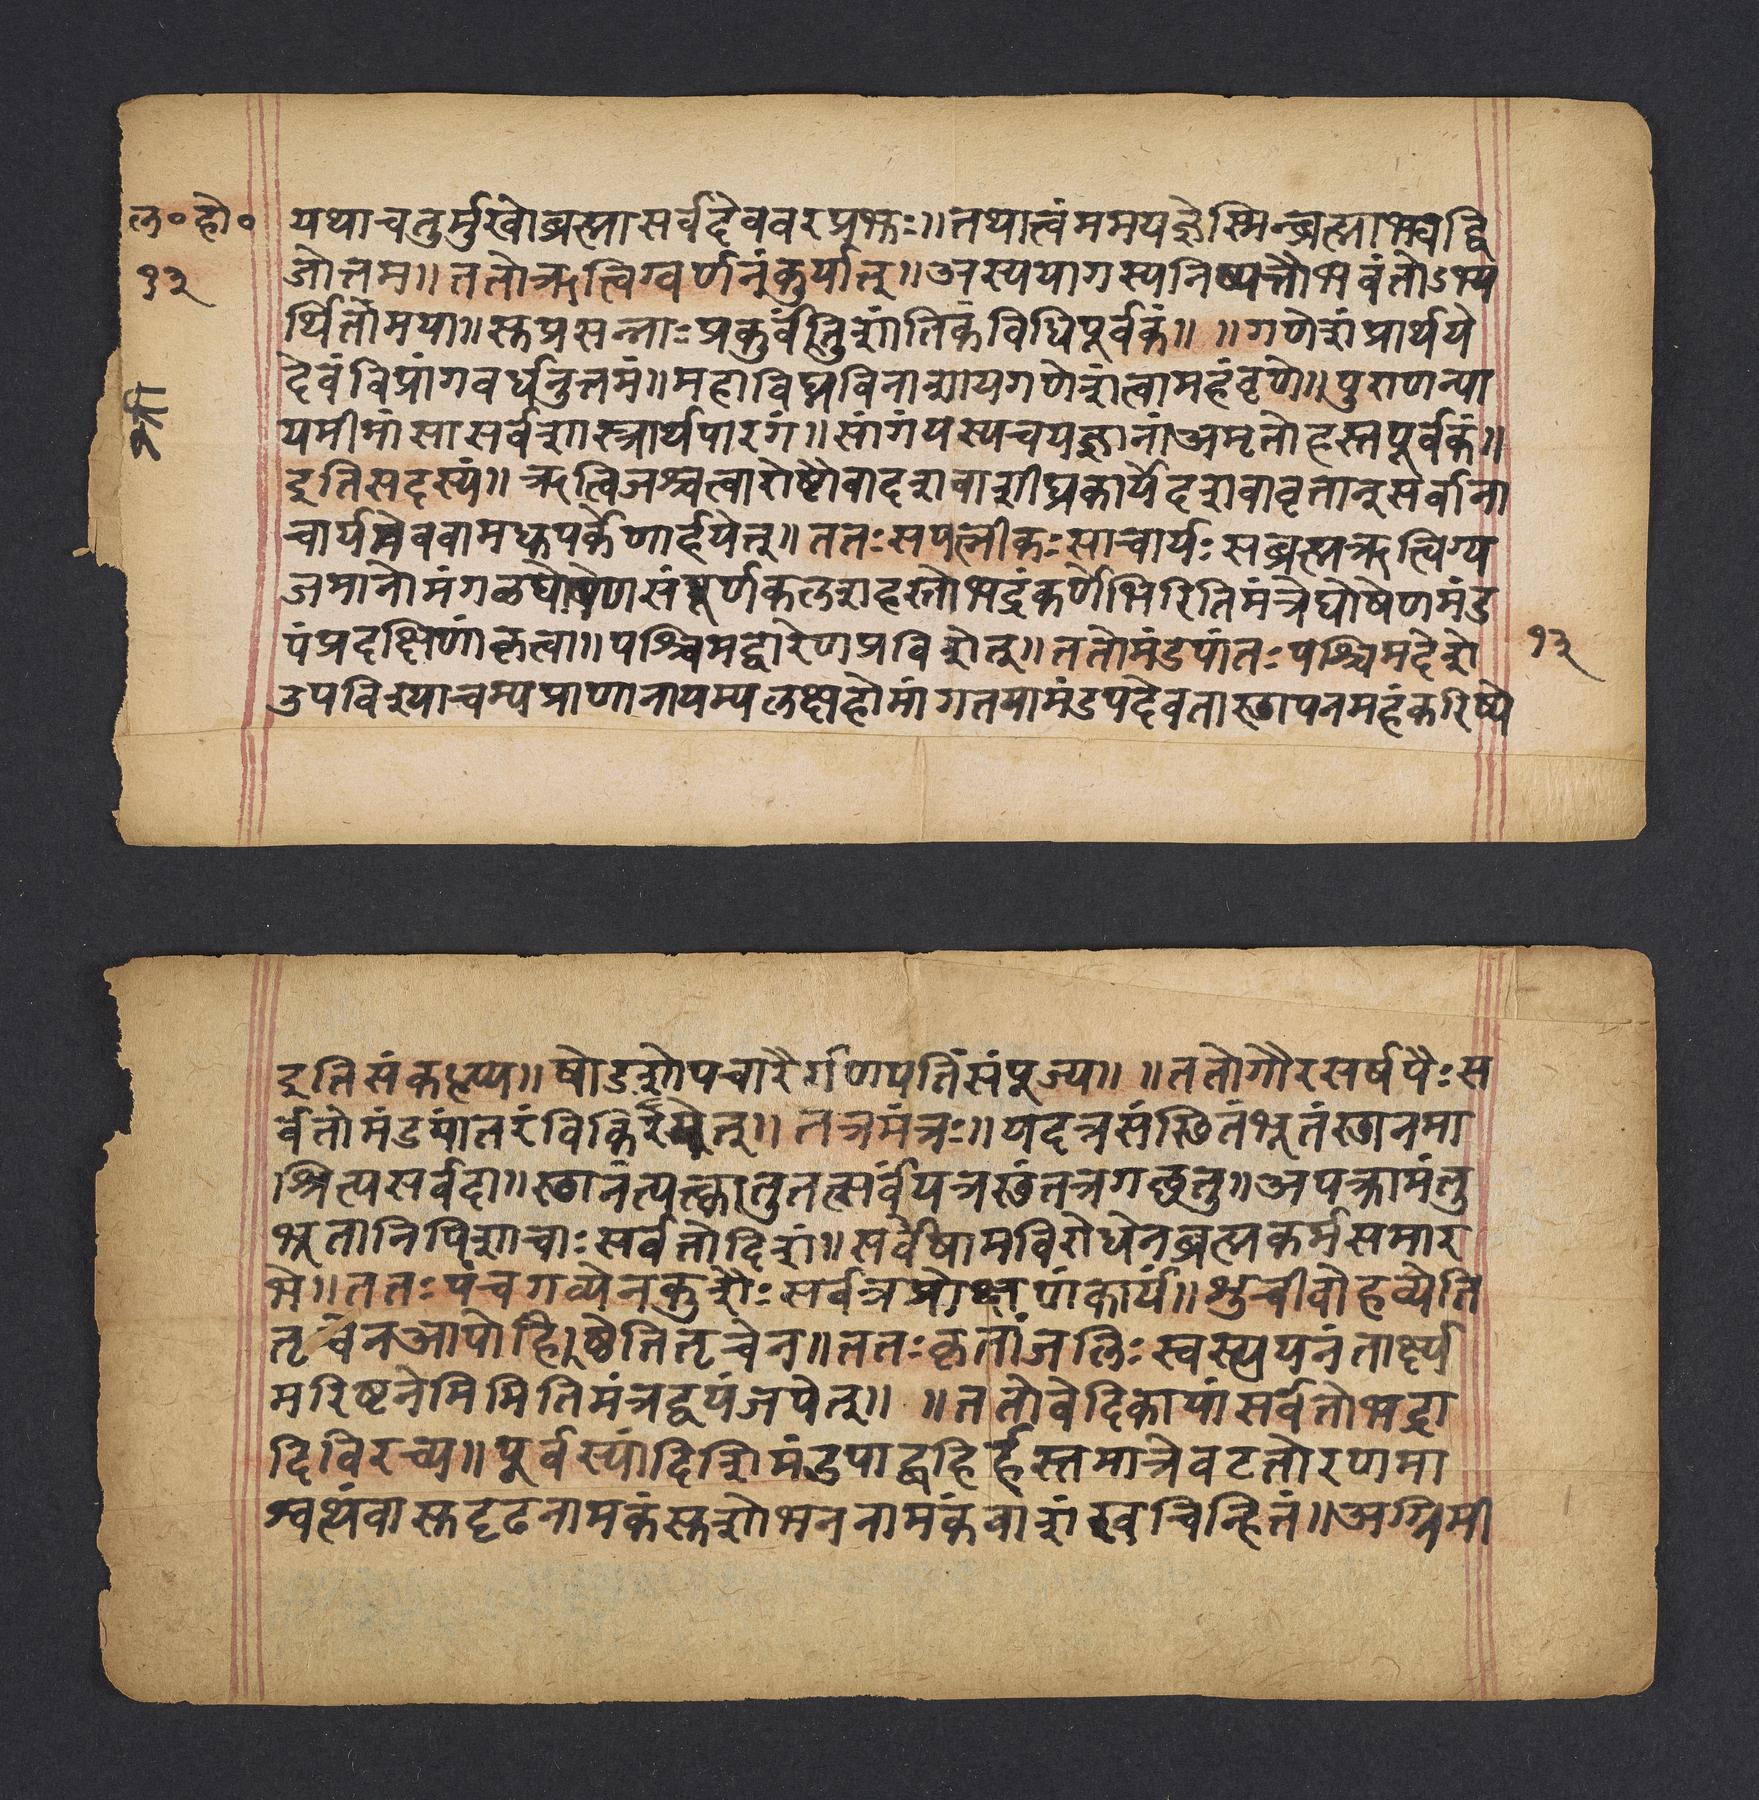 ल०हो० यथाचतुर्मुखोब्रह्मासर्वदेववरप्रभुः॥तथात्वंममयज्ञेस्मिन्ब्रह्माभवद्वि
१३ जोत्तम॥ततोऋत्विग्वर्णनंकुर्यात्॥अस्ययागस्यनिष्पत्तौभवंतोऽभ्य
र्थितोमया॥सुप्रसन्नाःप्रकुर्वंतुशांतिकंविधिपूर्वकं॥ ॥गणेशंप्रार्थये
देवंविप्रांगवर्धनुत्तमं॥महाविघ्नविनाशायगणेशंत्वामहंवृणे॥पुराणन्या
श्री
यमीमांसासर्वशास्त्रार्थपारगं॥सांगंयस्यचयज्ञानांअमृतोहस्तपूर्वकं॥
इतिसदस्यं॥ऋत्विजश्चत्वारोष्टौवादशवाशीघ्रकार्येदशवावृत्तान्सर्वाना
चार्यमेववामधुपर्केणार्हयेत्॥ततःसपत्नीकःसाचार्यःसब्रह्मऋत्विग्य
जमानोमंगळघोषेणसंपूर्णकलशहस्तोभद्रंकर्णेभिरितिमंत्रघोषेणमंड
पंप्रदक्षिणांकृत्वा॥पश्चिमद्वारेणप्रविशेत्॥ततोमंडपांतःपश्चिमदेशे १३
उपविश्याचम्यप्राणानायम्यलक्षहोमांगतयामंडपदेवतास्थापनमहंकरिष्ये
इतिसंकल्प्य॥षोडशोपचारैर्गणपतिंसंपूज्य॥ ॥ततोगौरसर्षपैःस
र्वतोमंडमांतरंविकिरेत्॥तत्रमंत्रः॥यदत्रसंस्थितंभूतंस्थानमा
श्रित्यसर्वदा॥स्थानंत्यक्त्वातुतत्सर्वंयत्रस्थंतत्रगछतु॥अपक्रामंतु
भूतानिपिशाचाःसर्वतोदिशं॥सर्वेषामविरोधेनब्रह्मकर्मसमार
भे॥ततःपंचगव्येनकुशैःसर्वत्रप्रोक्षणंकार्यं॥शुचीवोहव्येति
तृचेनआपोहिष्ठेतितृचेन॥ततःकृतांजलिःस्वस्त्ययनंतार्क्ष्य
मरिष्टनेमिमितिमंत्रद्वयंजपेत्॥ ॥ततोवेदिकायांसर्वतोभद्रा
दिविरच्य॥पूर्वस्यांदिशिमंडपाद्वहिर्हस्तमात्रेवटतोरणमा
श्वत्थंवासुदृढनामकंसुशोभननामकंवाशंखचिन्हितं॥अग्निमी